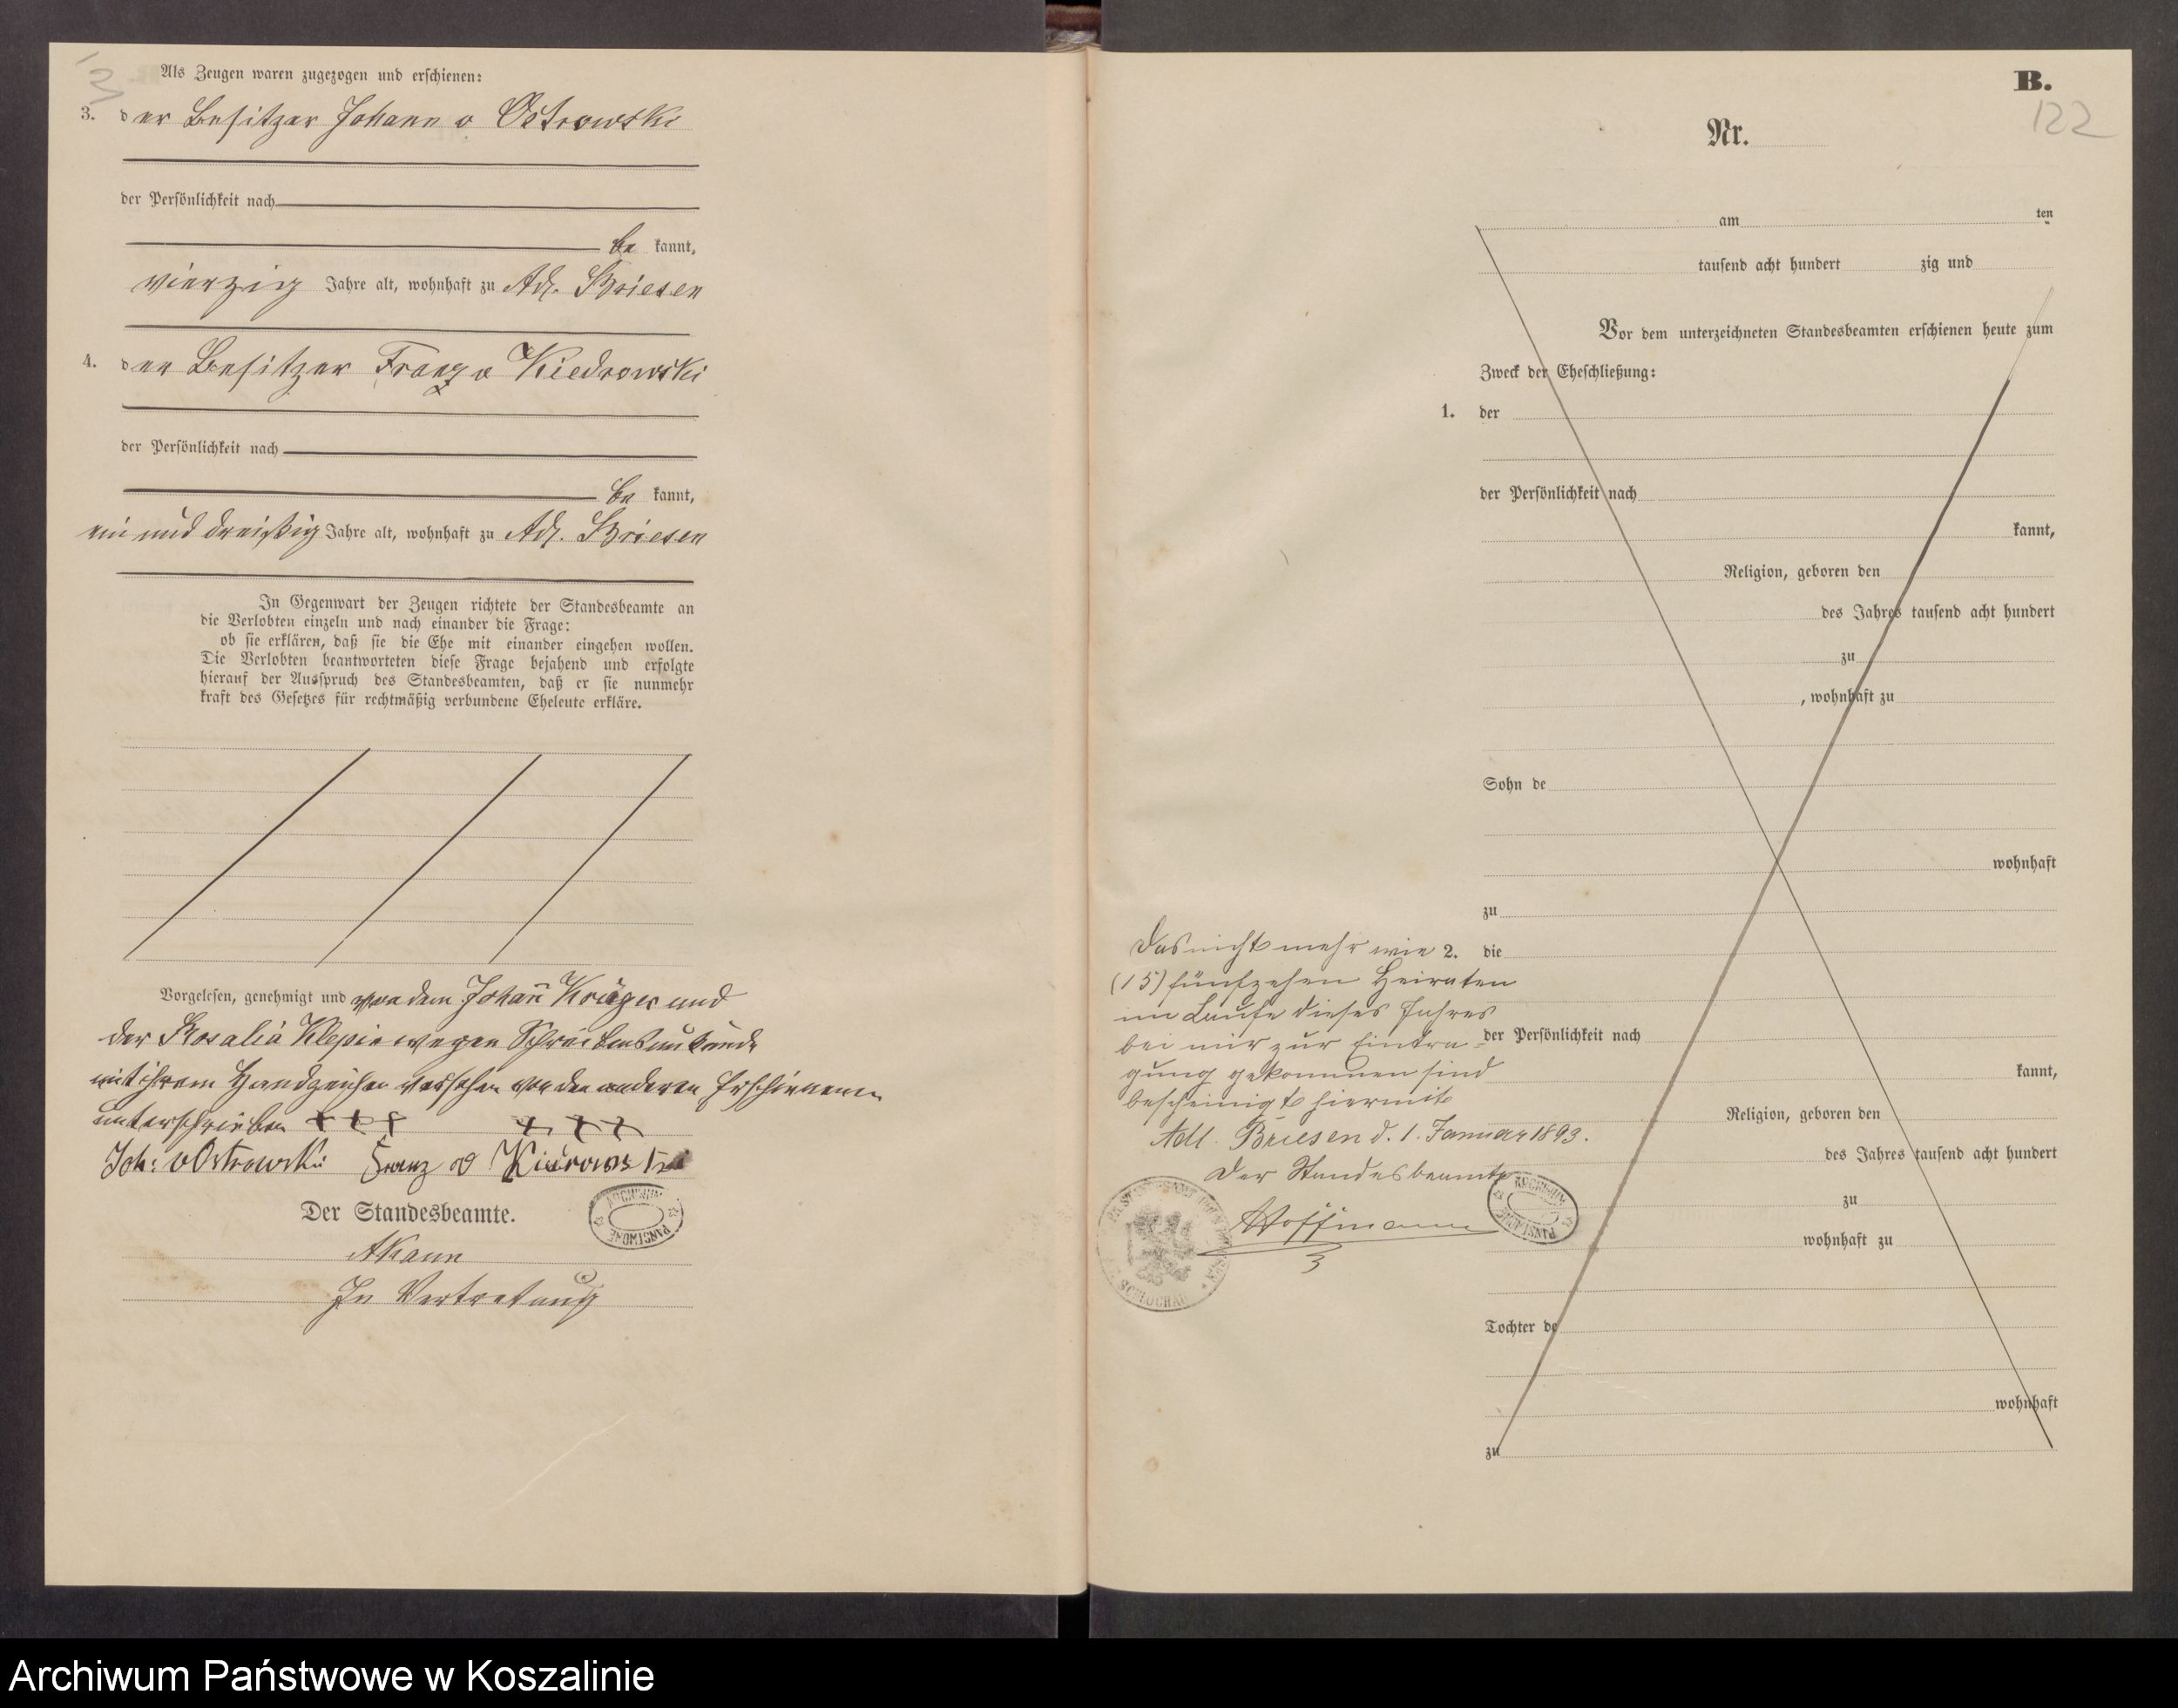 Als Zeugen waren zugezogen und erschienen:
3. der Besitzer Johann v Ostrowski
der Persönlichkeit nach
be kannt,
vierzig Jahre alt, wohnhaft zu Adl. Briesen
4. der Besitzer Franz v Kiedrowski
der Persönlichkeit nach
be kannt,
ein und dreißig Jahre alt, wohnhaft zu Adl. Briesen
In Gegenwart der Zeugen richtete der Standesbeamte an
die Verlobten einzeln und nach einander die Frage:
ob sie erklären, daß sie die Ehe mit einander eingehen wollen.
Die Verlobten beantworteten diese Frage bejahend und erfolgte
hierauf der Ausspruch des Standesbeamten, daß er sie nunmehr
kraft des Gesetzes für rechtmäßig verbundene Eheleute erkläre.
Vorgelesen, genehmigt und von dem Johann Krüger und
der Rosalia Klepin wegen Schreibensunkunde
mit ihrem Handzeichen versehen von den anderen Erschienenen
unterschrieben +++ +++
Joh: v Ostrowski Franz v Kiedrowski
Der Standesbeamte.
AKann
In Vertretung
ARCHIWUM PAŃSTWOWE
B.
122
Nr.
am ten
tausend acht hundert zig und
Vor dem unterzeichneten Standesbeamten erschienen heute zum
Zweck der Eheschließung:
1. der
der Persönlichkeit nach
kannt,
Religion, geboren den
des Jahres tausend acht hundert
zu
, wohnhaft zu
Sohn de
wohnhaft
zu
2. die
der Persönlichkeit nach
kannt,
Religion, geboren den
des Jahres tausend acht hundert
zu
wohnhaft zu
Tochter de
wohnhaft
zu
Das nicht mehr wie
(15) fünfzehen Heiraten
im Laufe dieses Jahres
bei mir zur Eintra-
gung gekommen sind
bescheinigt hiermit
Adl. Briesen d. 1. Januar 1893.
Der Standesbeamte
Hoffmann
ARCHIWUM PAŃSTWOWE
SCHLOCHAU
Archiwum Państwowe w Koszalinie